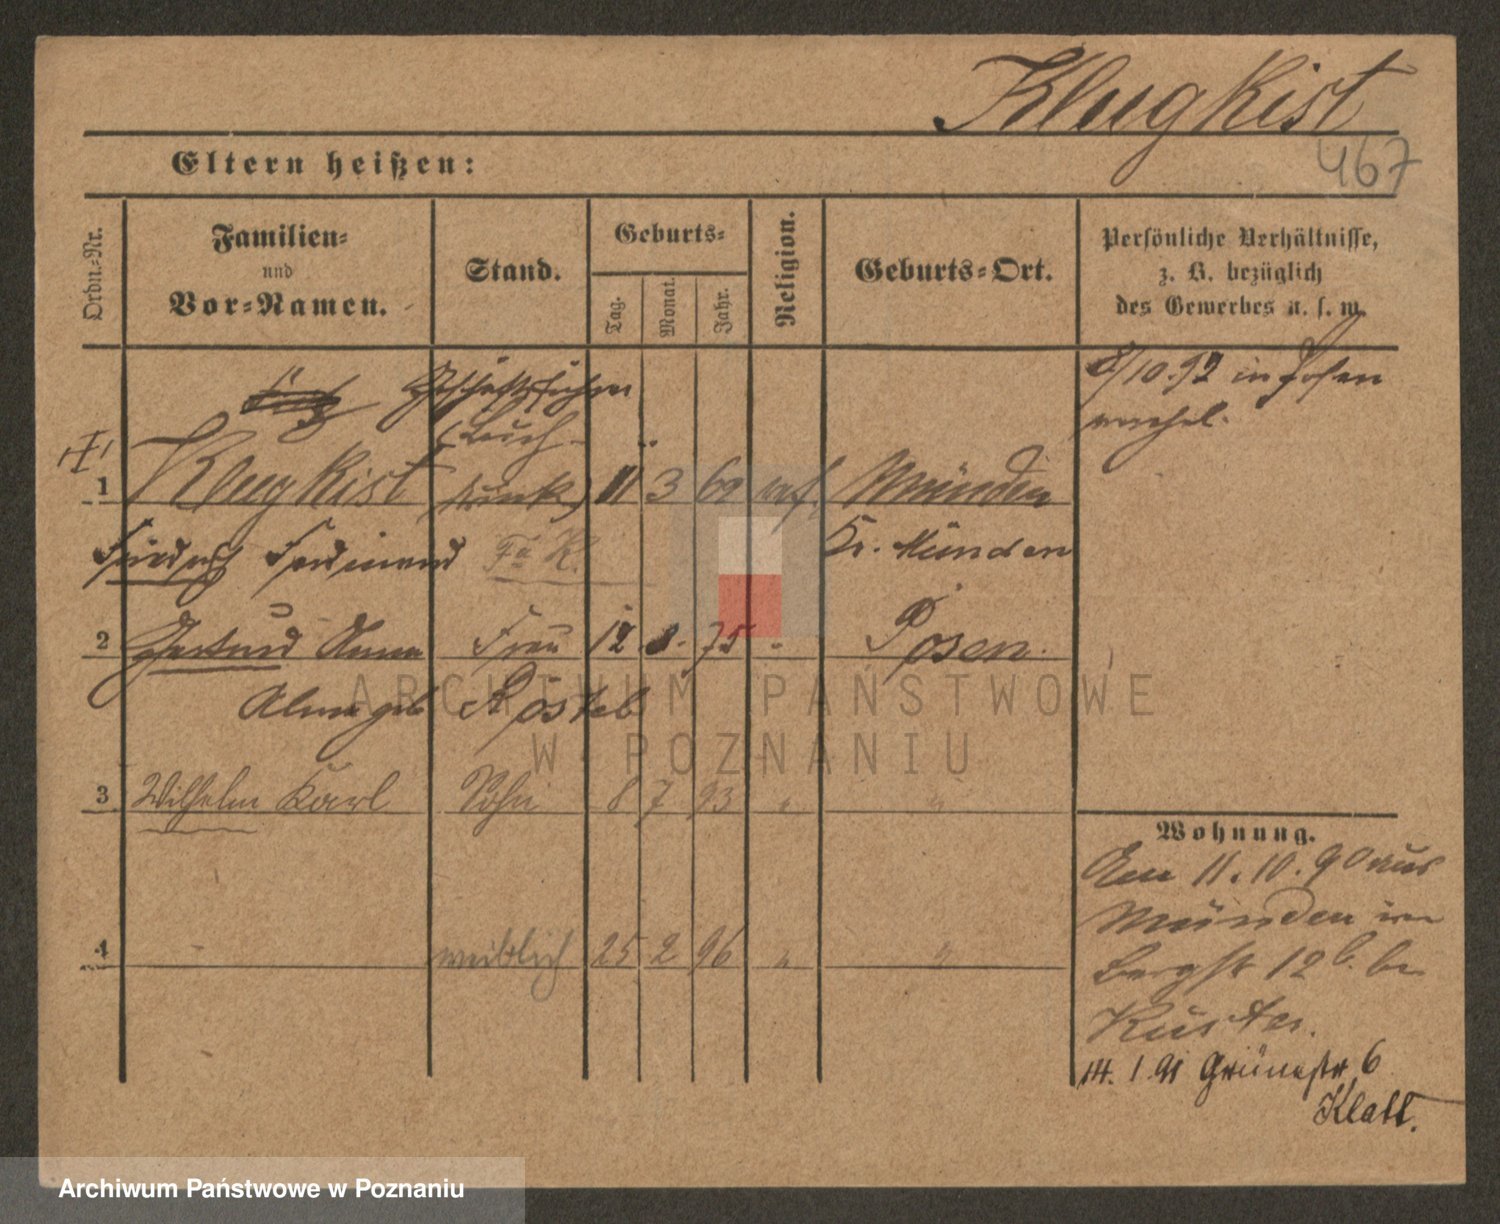 Klugkist
467
Eltern heißen:
Ordn.-Nr.
Familien-
und
Vor-Namen.
Stand.
Geburts-
Tag.
Monat.
Jahr.
Religion.
Geburts-Ort.
Persönliche Verhältnisse,
z. B. bezüglich
des Gewerbes u. s. w.
Geschäftsführer
8/10.92 in Posen
(Buch-
1 Klugkist 11 3 60 ref. Münden
Friedrich Ferdinand Kr. Münden
2 Gertrud Anna Frau 12 8. 75 " Posen.
Alma geb Röstel
3 Wilhelm Karl Sohn 8 7 93 " "
Wohnung.
Am 11.10.90 aus
Münden in
4 - weiblich 25 2 96 " "
Bergstr 12b. bei
Kuster.
14.1.91 Grünestr. 6
Klatt.
ARCHIWUM PAŃSTWOWE
W POZNANIU
Archiwum Państwowe w Poznaniu